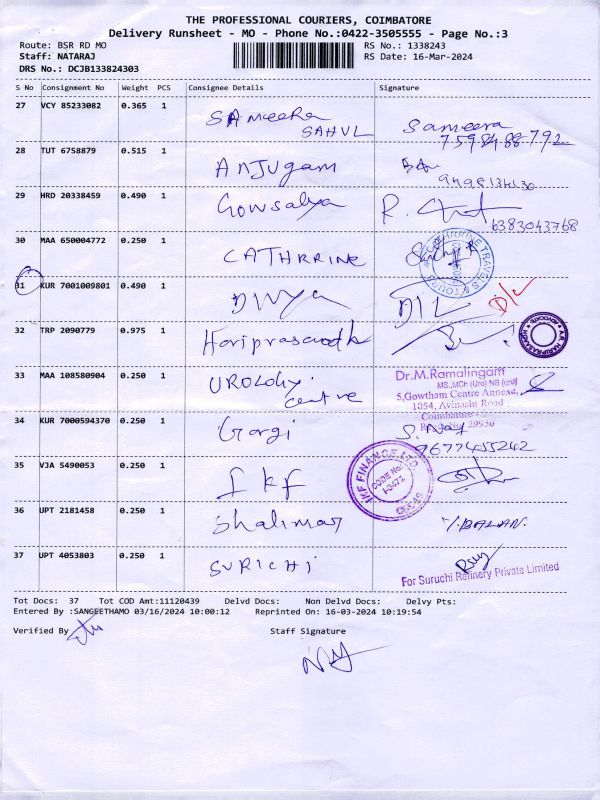 THE PROFESSIONAL COURIERS, COIMBATORE
Delivery Runsheet - MO - Phone No.:0422-3505555 - Page No.:3
Route: BSR RD MO RS No.: 1338243
Staff: NATARAJ RS Date: 16-Mar-2024
DRS No.: DCJB133824303
S No Consignment No Weight PCS Consignee Details Signature
27 VCY 85233082 0.365 1 SAMeeRa SAHUL Sameera
28 TUT 6758879 0.515 1 ANJUgam
29 HRD 20338459 0.490 1 Gowsalya
6383043768
30 MAA 650004772 0.250 1 CATHRRINE
31 KUR 7001009801 0.490 1 DIVya D/L D/L
32 TRP 2090779 0.975 1 Hariprasandh
33 MAA 108580904 0.250 1 UROLOgy centre
Dr.M.Ramalingam
MS.,MCh (Uro) NB (uro)
5,Gowtham Centre Annexe,
1054, Avinashi Road
Coimbatore
34 KUR 7000594370 0.250 1 Gargi
9677455242
35 VJA 5490053 0.250 1 Ikf
IKF FINANCE LTD
CODE No.
36 UPT 2181458 0.250 1 Shalimar Y.BALAN.
37 UPT 4053803 0.250 1 SURICHI
For Suruchi Refinery Private Limited
Tot Docs: 37 Tot COD Amt:11120439 Delvd Docs: Non Delvd Docs: Delvy Pts:
Entered By :SANGEETHAMO 03/16/2024 10:00:12 Reprinted On: 16-03-2024 10:19:54
Verified By Staff Signature